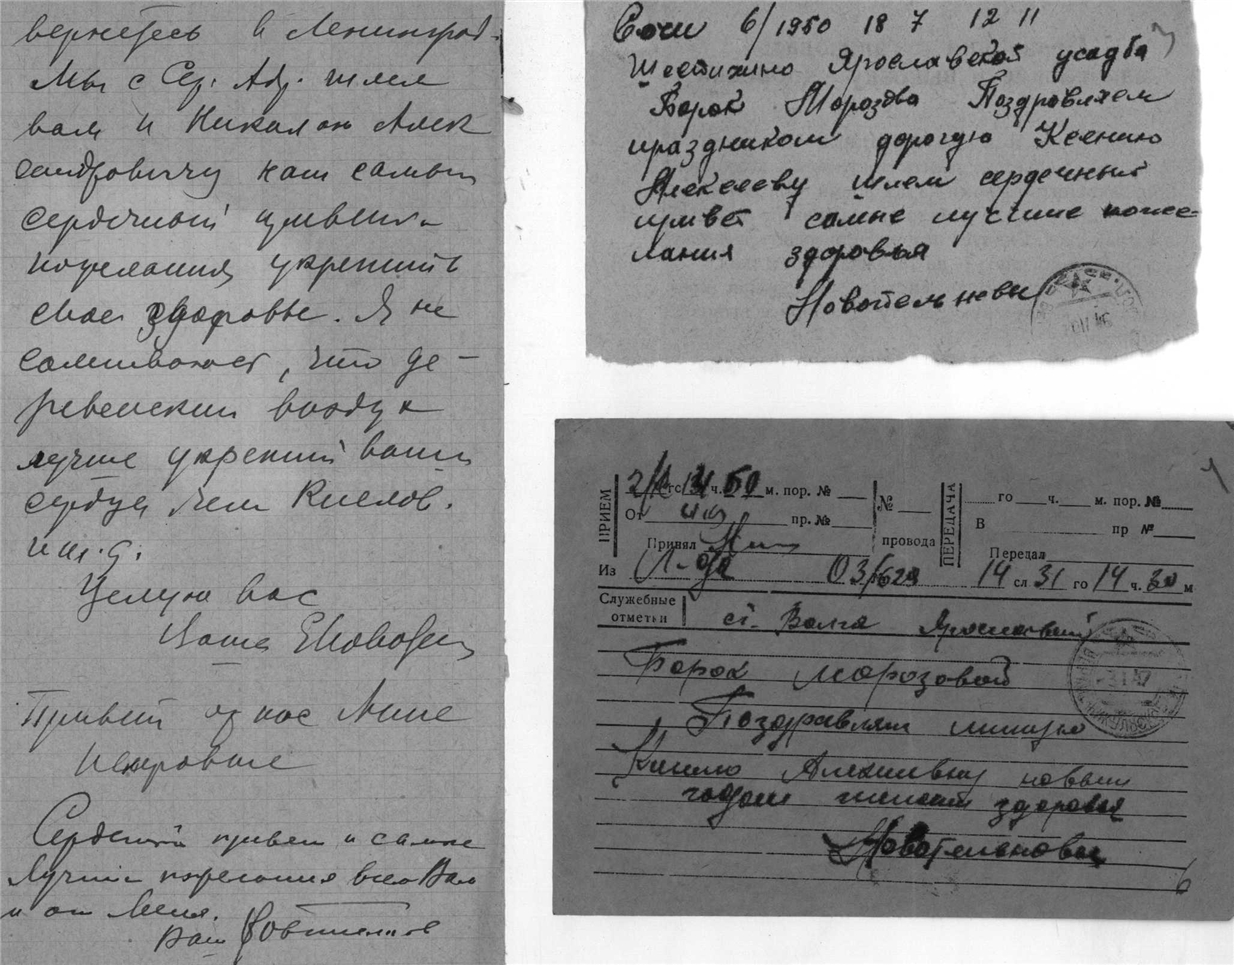 вернетесь в Ленинград.
Мы с Сер. Ад. шлем
вам и Николаю Алек
сандровичу наш самый
сердечный привет и
пожелания укрепить
свое здоровье. Я не
сомневаюсь, что де-
ревенский воздух
лучше укрепит ваши
сердца, чем Кислов.
и т.д.
Целую вас
Ваша
Привет от нас Анне
Петровне
Сердечный привет и самые
лучшие пожелания всем Вам
и от меня.
Ваш
Сочи 6/1950 18 7 12 11
Шестихино Ярославской усадьба
Борок Морозова Поздравляем
праздником дорогую Ксению
Алексеевну шлем сердечный
привет самые лучшие поже-
лания здоровья
Новотельновы
ПРИЕМ
го ч. 50 м. пор. №
От пр. №
Принял
№
провода
ПЕРЕДАЧА
го ч. м. пор. №
В пр №
Передал
Из Л-да 14 сл 31 го 14 ч. 30 м
Служебные
отметки
ст. Волга Ярославской
Борок Морозовой
Поздравляем милую
Ксению Алексеевну новым
годом желаем здоровья
Новотельновы
6